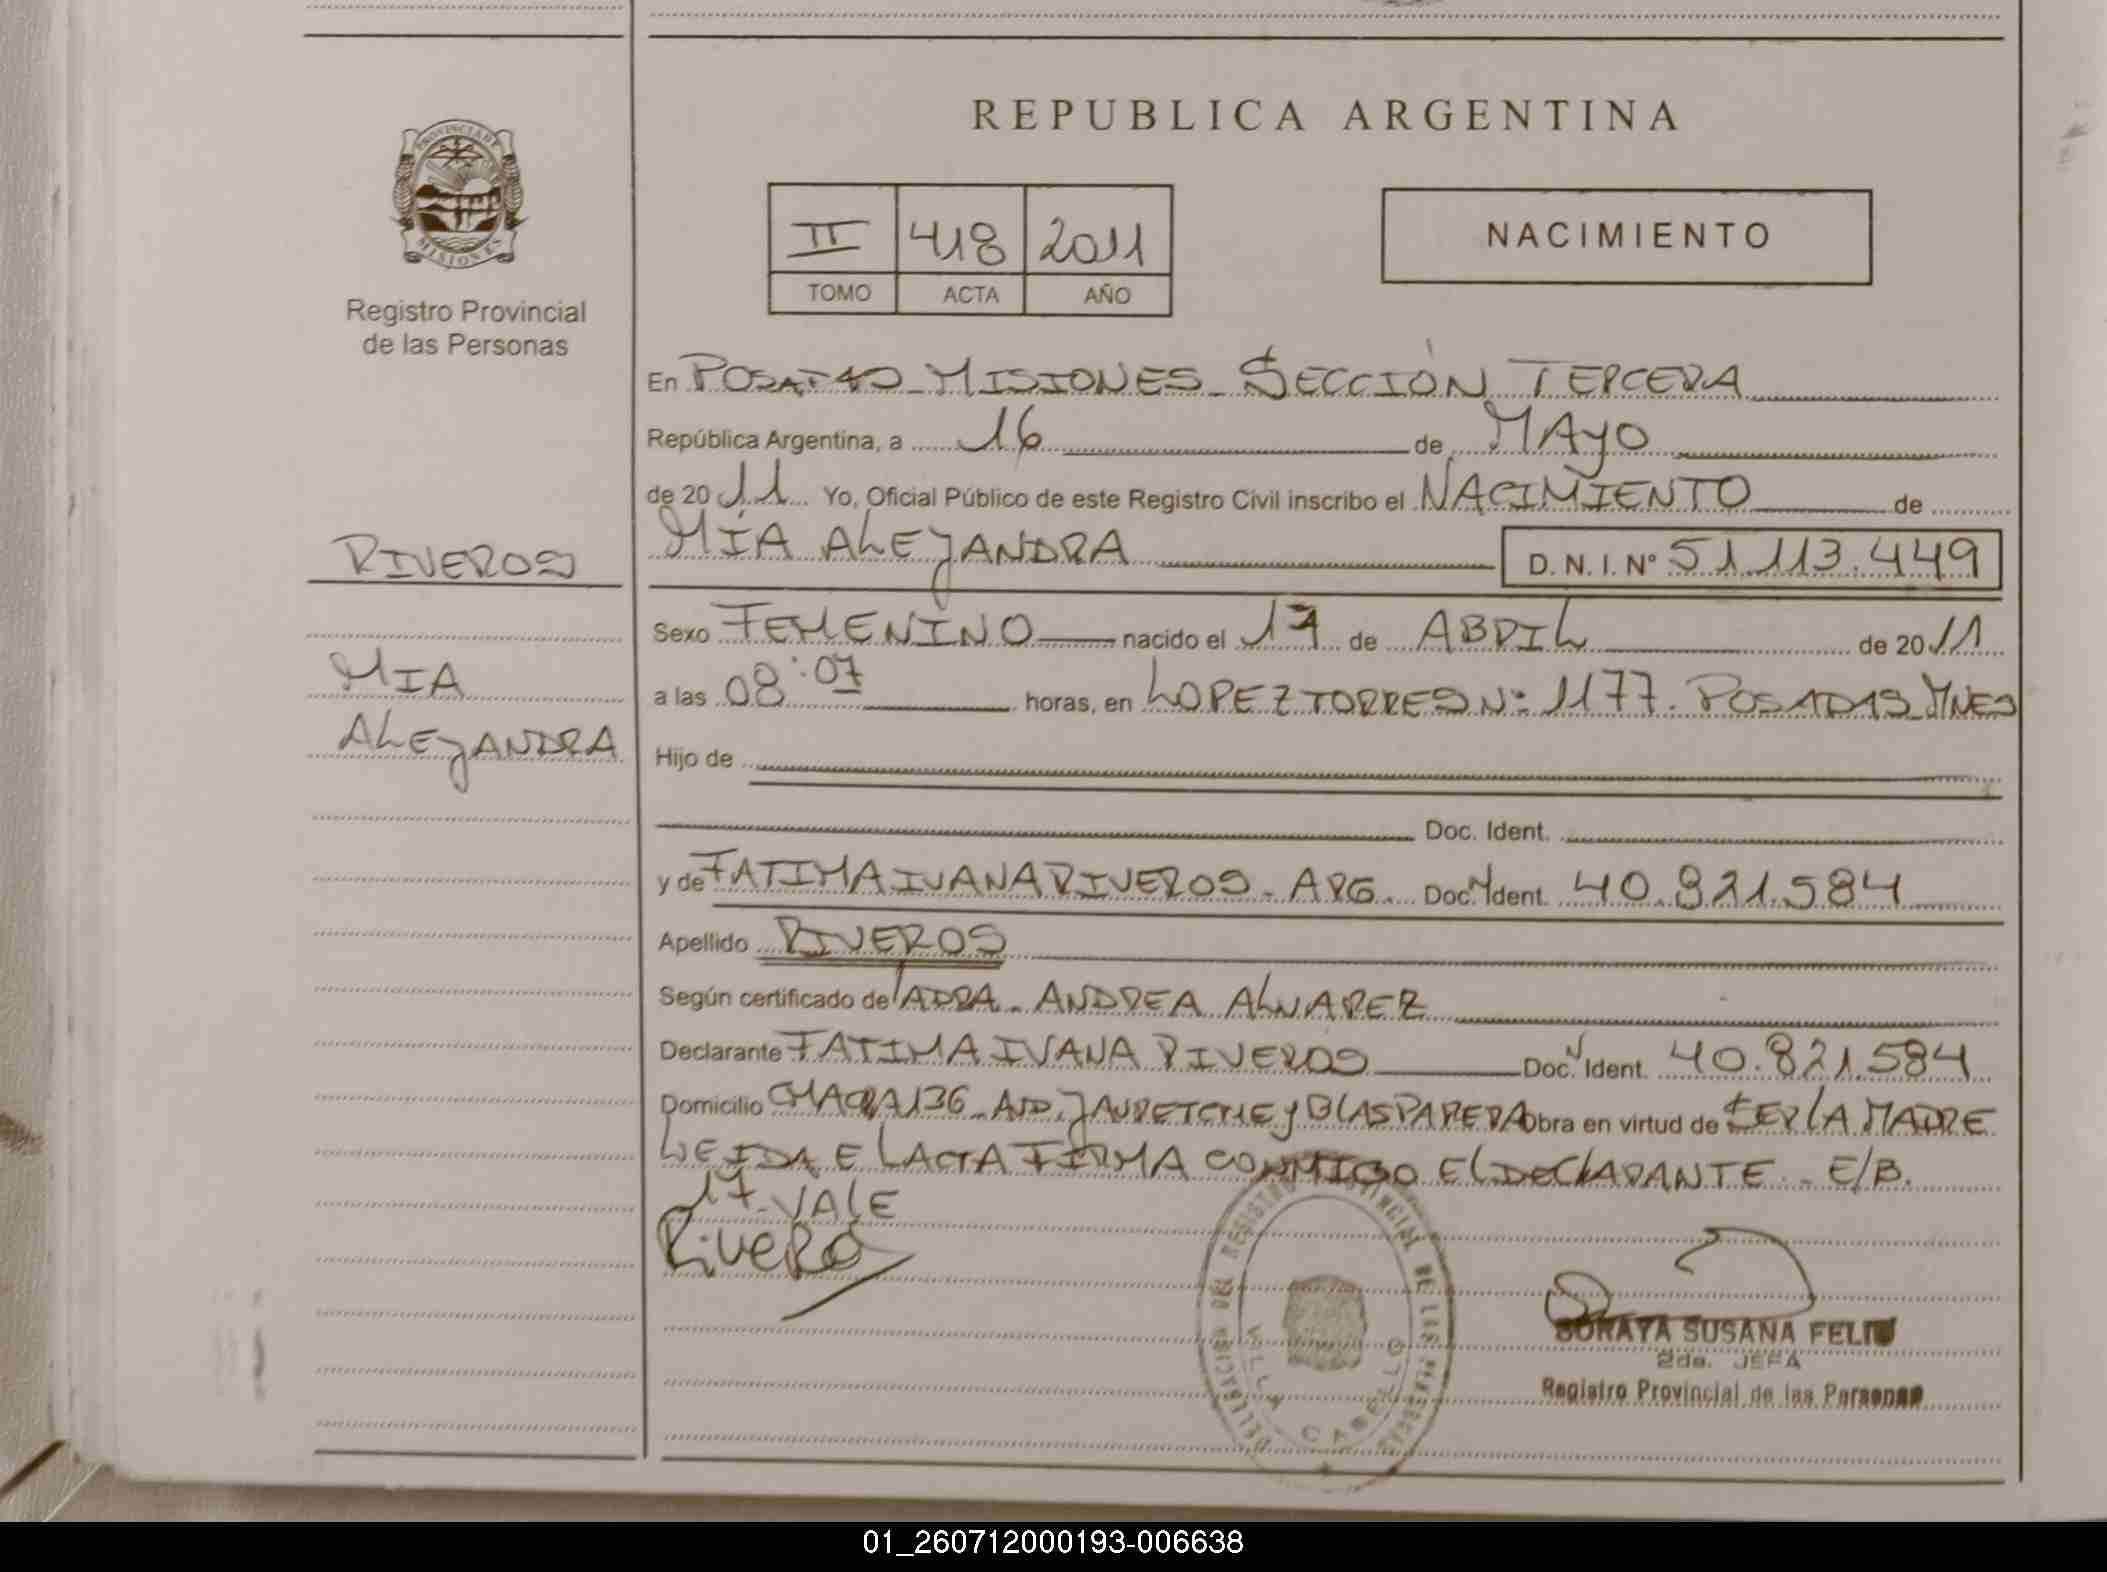 REPUBLICA ARGENTINA
PROVINCIA DE MISIONES
Registro Provincial
de las Personas
II 418 2011
TOMO ACTA AÑO
NACIMIENTO
En POSADAS_MISIONES_SECCIÓN TERCERA
República Argentina, a 16 de MAyO
de 20 11 Yo, Oficial Público de este Registro Civil inscribo el NACIMIENTO de
MÍA ALEJANDRA D. N. I. Nº 51.113.449
RIVEROS
MIA
ALEJANDRA
Sexo FEMENINO nacido el 17 de ABRIL de 20 11
a las 08:07 horas, en LOPEZ TORRES Nº 1177. POSADAS_MNES
Hijo de
Doc. Ident.
y de FATIMA IVANA RIVEROS - ARG. Doc. Ident. 40.821.584
Apellido RIVEROS
Según certificado de ANDREA ALVAREZ
Declarante FATIMA IVANA RIVEROS Doc. Ident. 40.821.584
Domicilio CHACRA 136_AND. JAURETCHE y BLAS PARERA Obra en virtud de SER LA MADRE
LEIDA EL ACTA FIRMA CONMIGO EL DECLARANTE - E/B.
17-VALE
Riveros
DELEGACION DEL REGISTRO PROVINCIAL DE LAS PERSONAS
VILLA CABELLO
SORAYA SUSANA FELIU
2da. JEFA
Registro Provincial de las Personas
01_260712000193-006638